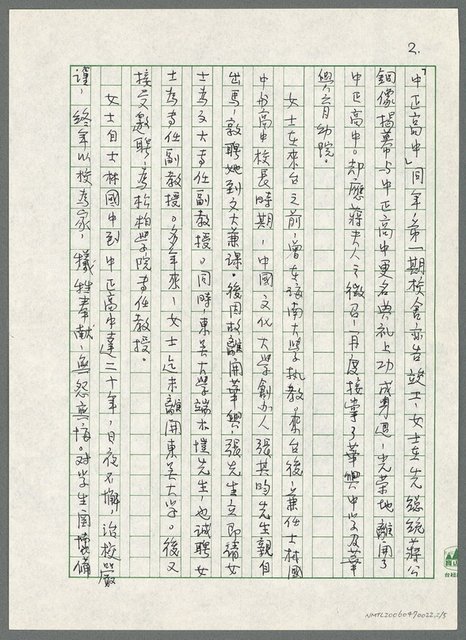 2.
「中正高中」同年,第一期校舍亦告竣工,女士在先總統蔣公
銅像揭幕与中正高中更名典礼上功成身退,光荣地離開了
中正高中。却應蔣夫人之徵召,一度接掌了華興中学及華
興育幼院。
女士在來台之前,曾在海南大學执教。來台後,兼任士林國
中、初高中校長時期,中國文化大學創办人張其昀先生親自
出馬,敦聘她到文大兼课。後因故離開華興,張先生立即請女
士為文大專任副教授。同時,東吴大学端木愷先生,也誠聘女
士為專任副教授。多年來,女士迄未離開東吴大学。後又
接受邀聘,為松柏学院專任教授。
女士自士林國中到中正高中達二十年,日夜不懈,治校嚴
謹,終年以校為家,犧牲奉献,無怨無悔。对学生關懷備
NMTL20060470022,2/5